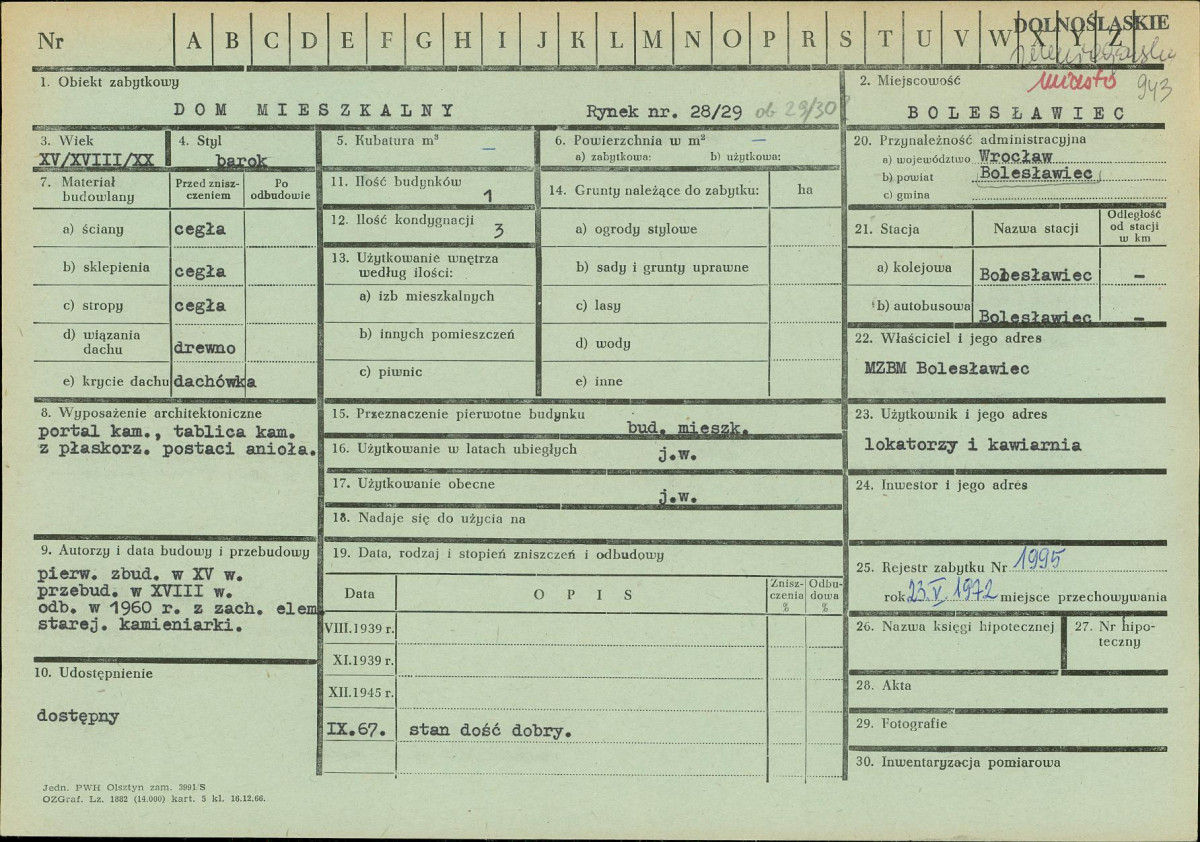 Nr A B C D E F G H I J K L M N O P R S T U V W X Y Z
DOLNOŚLĄSKIE
miasto 943
1. Obiekt zabytkowy
DOM MIESZKALNY Rynek nr. 28/29 ob 29/30?
2. Miejscowość
BOLESŁAWIEC
3. Wiek
XV/XVIII/XX
4. Styl
barok
5. Kubatura m³ —
6. Powierzchnia w m² —
a) zabytkowa: b) użytkowa:
7. Materiał budowlany
Przed zniszczeniem
Po odbudowie
a) ściany cegła
b) sklepienia cegła
c) stropy cegła
d) wiązania dachu drewno
e) krycie dachu dachówka
8. Wyposażenie architektoniczne
portal kam., tablica kam.
z płaskorz. postaci anioła.
9. Autorzy i data budowy i przebudowy
pierw. zbud. w XV w.
przebud. w XVIII w.
odb. w 1960 r. z zach. elem.
starej. kamieniarki.
10. Udostępnienie
dostępny
Jedn. PWH Olsztyn zam. 3991/S
OZGraf. Lz. 1882 (14.000) kart. 5 kl. 16.12.66.
11. Ilość budynków 1
12. Ilość kondygnacji 3
13. Użytkowanie wnętrza
według ilości:
a) izb mieszkalnych
b) innych pomieszczeń
c) piwnic
14. Grunty należące do zabytku: ha
a) ogrody stylowe
b) sady i grunty uprawne
c) lasy
d) wody
e) inne
15. Przeznaczenie pierwotne budynku
bud. mieszk.
16. Użytkowanie w latach ubiegłych
j.w.
17. Użytkowanie obecne
j.w.
18. Nadaje się do użycia na
19. Data, rodzaj i stopień zniszczeń i odbudowy
Data OPIS Zniszczenia % Odbudowa %
VIII.1939 r.
XI.1939 r.
XII.1945 r.
IX.67. stan dość dobry.
20. Przynależność administracyjna
a) województwo Wrocław
b) powiat Bolesławiec
c) gmina
21. Stacja Nazwa stacji Odległość od stacji w km
a) kolejowa Bolesławiec —
b) autobusowa Bolesławiec —
22. Właściciel i jego adres
MZBM Bolesławiec
23. Użytkownik i jego adres
lokatorzy i kawiarnia
24. Inwestor i jego adres
25. Rejestr zabytku Nr 1995
rok 23.V.1972 miejsce przechowywania
26. Nazwa księgi hipotecznej
27. Nr hipoteczny
28. Akta
29. Fotografie
30. Inwentaryzacja pomiarowa